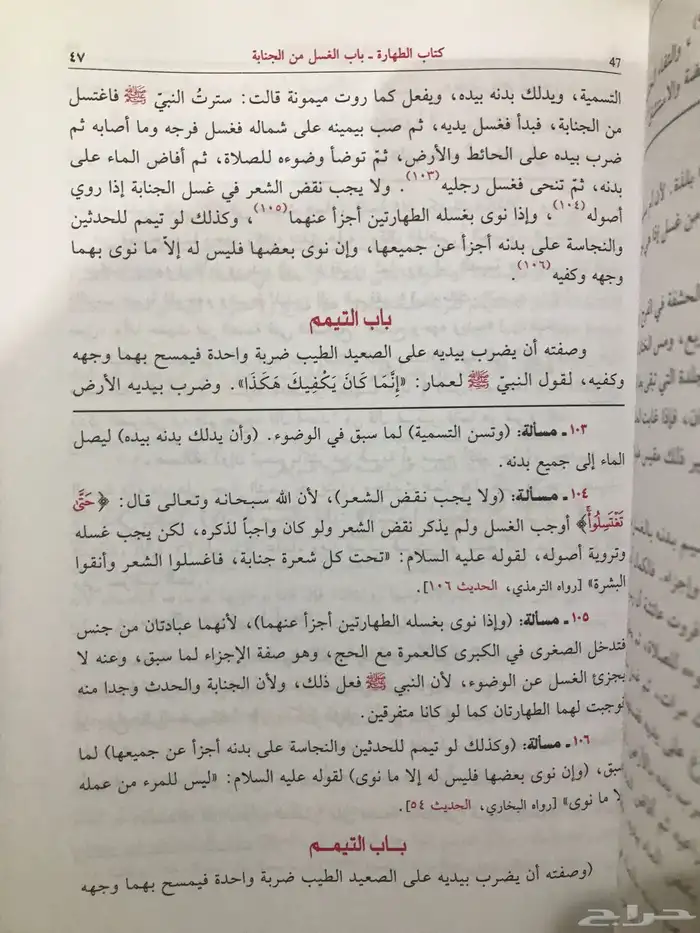 47 كتاب الطهارة ـ باب الغسل من الجنابة ٤٧
التسمية، ويدلك بدنه بيده، ويفعل كما روت ميمونة قالت: سترتُ النبيّ ﷺ فاغتسل
من الجنابة، فبدأ فغسل يديه، ثم صب بيمينه على شماله فغسل فرجه وما أصابه ثم
ضرب بيده على الحائط والأرض، ثمّ توضأ وضوءه للصلاة، ثم أفاض الماء على
بدنه، ثمّ تنحى فغسل رجليه(١٠٣). ولا يجب نقض الشعر في غسل الجنابة إذا روي
أصوله(١٠٤)، وإذا نوى بغسله الطهارتين أجزأ عنهما(١٠٥)، وكذلك لو تيمم للحدثين
والنجاسة على بدنه أجزأ عن جميعها، وإن نوى بعضها فليس له إلاّ ما نوى بهما
وجهه وكفيه(١٠٦).
باب التيمم
وصفته أن يضرب بيديه على الصعيد الطيب ضربة واحدة فيمسح بهما وجهه
وكفيه، لقول النبيّ ﷺ لعمار: «إِنَّمَا كَانَ يَكْفِيكَ هَكَذَا». وضرب بيديه الأرض
١٠٣ ـ مسألة: (وتسن التسمية) لما سبق في الوضوء. (وأن يدلك بدنه بيده) ليصل
الماء إلى جميع بدنه.
١٠٤ ـ مسألة: (ولا يجب نقض الشعر)، لأن الله سبحانه وتعالى قال: ﴿حَتَّىٰ
تَغْتَسِلُوا۟﴾ أوجب الغسل ولم يذكر نقض الشعر ولو كان واجباً لذكره، لكن يجب غسله
وتروية أصوله، لقوله عليه السلام: «تحت كل شعرة جنابة، فاغسلوا الشعر وأنقوا
البشرة» [رواه الترمذي، الحديث ١٠٦].
١٠٥ ـ مسألة: (وإذا نوى بغسله الطهارتين أجزأ عنهما)، لأنهما عبادتان من جنس
فتدخل الصغرى في الكبرى كالعمرة مع الحج، وهو صفة الإجزاء لما سبق، وعنه لا
يجزئ الغسل عن الوضوء، لأن النبي ﷺ فعل ذلك، ولأن الجنابة والحدث وجدا منه
فوجبت لهما الطهارتان كما لو كانا متفرقين.
١٠٦ ـ مسألة: (وكذلك لو تيمم للحدثين والنجاسة على بدنه أجزأ عن جميعها) لما
سبق، (وإن نوى بعضها فليس له إلا ما نوى) لقوله عليه السلام: «ليس للمرء من عمله
إلا ما نوى» [رواه البخاري، الحديث ٥٤].
باب التيمم
(وصفته أن يضرب بيديه على الصعيد الطيب ضربة واحدة فيمسح بهما وجهه
حراج